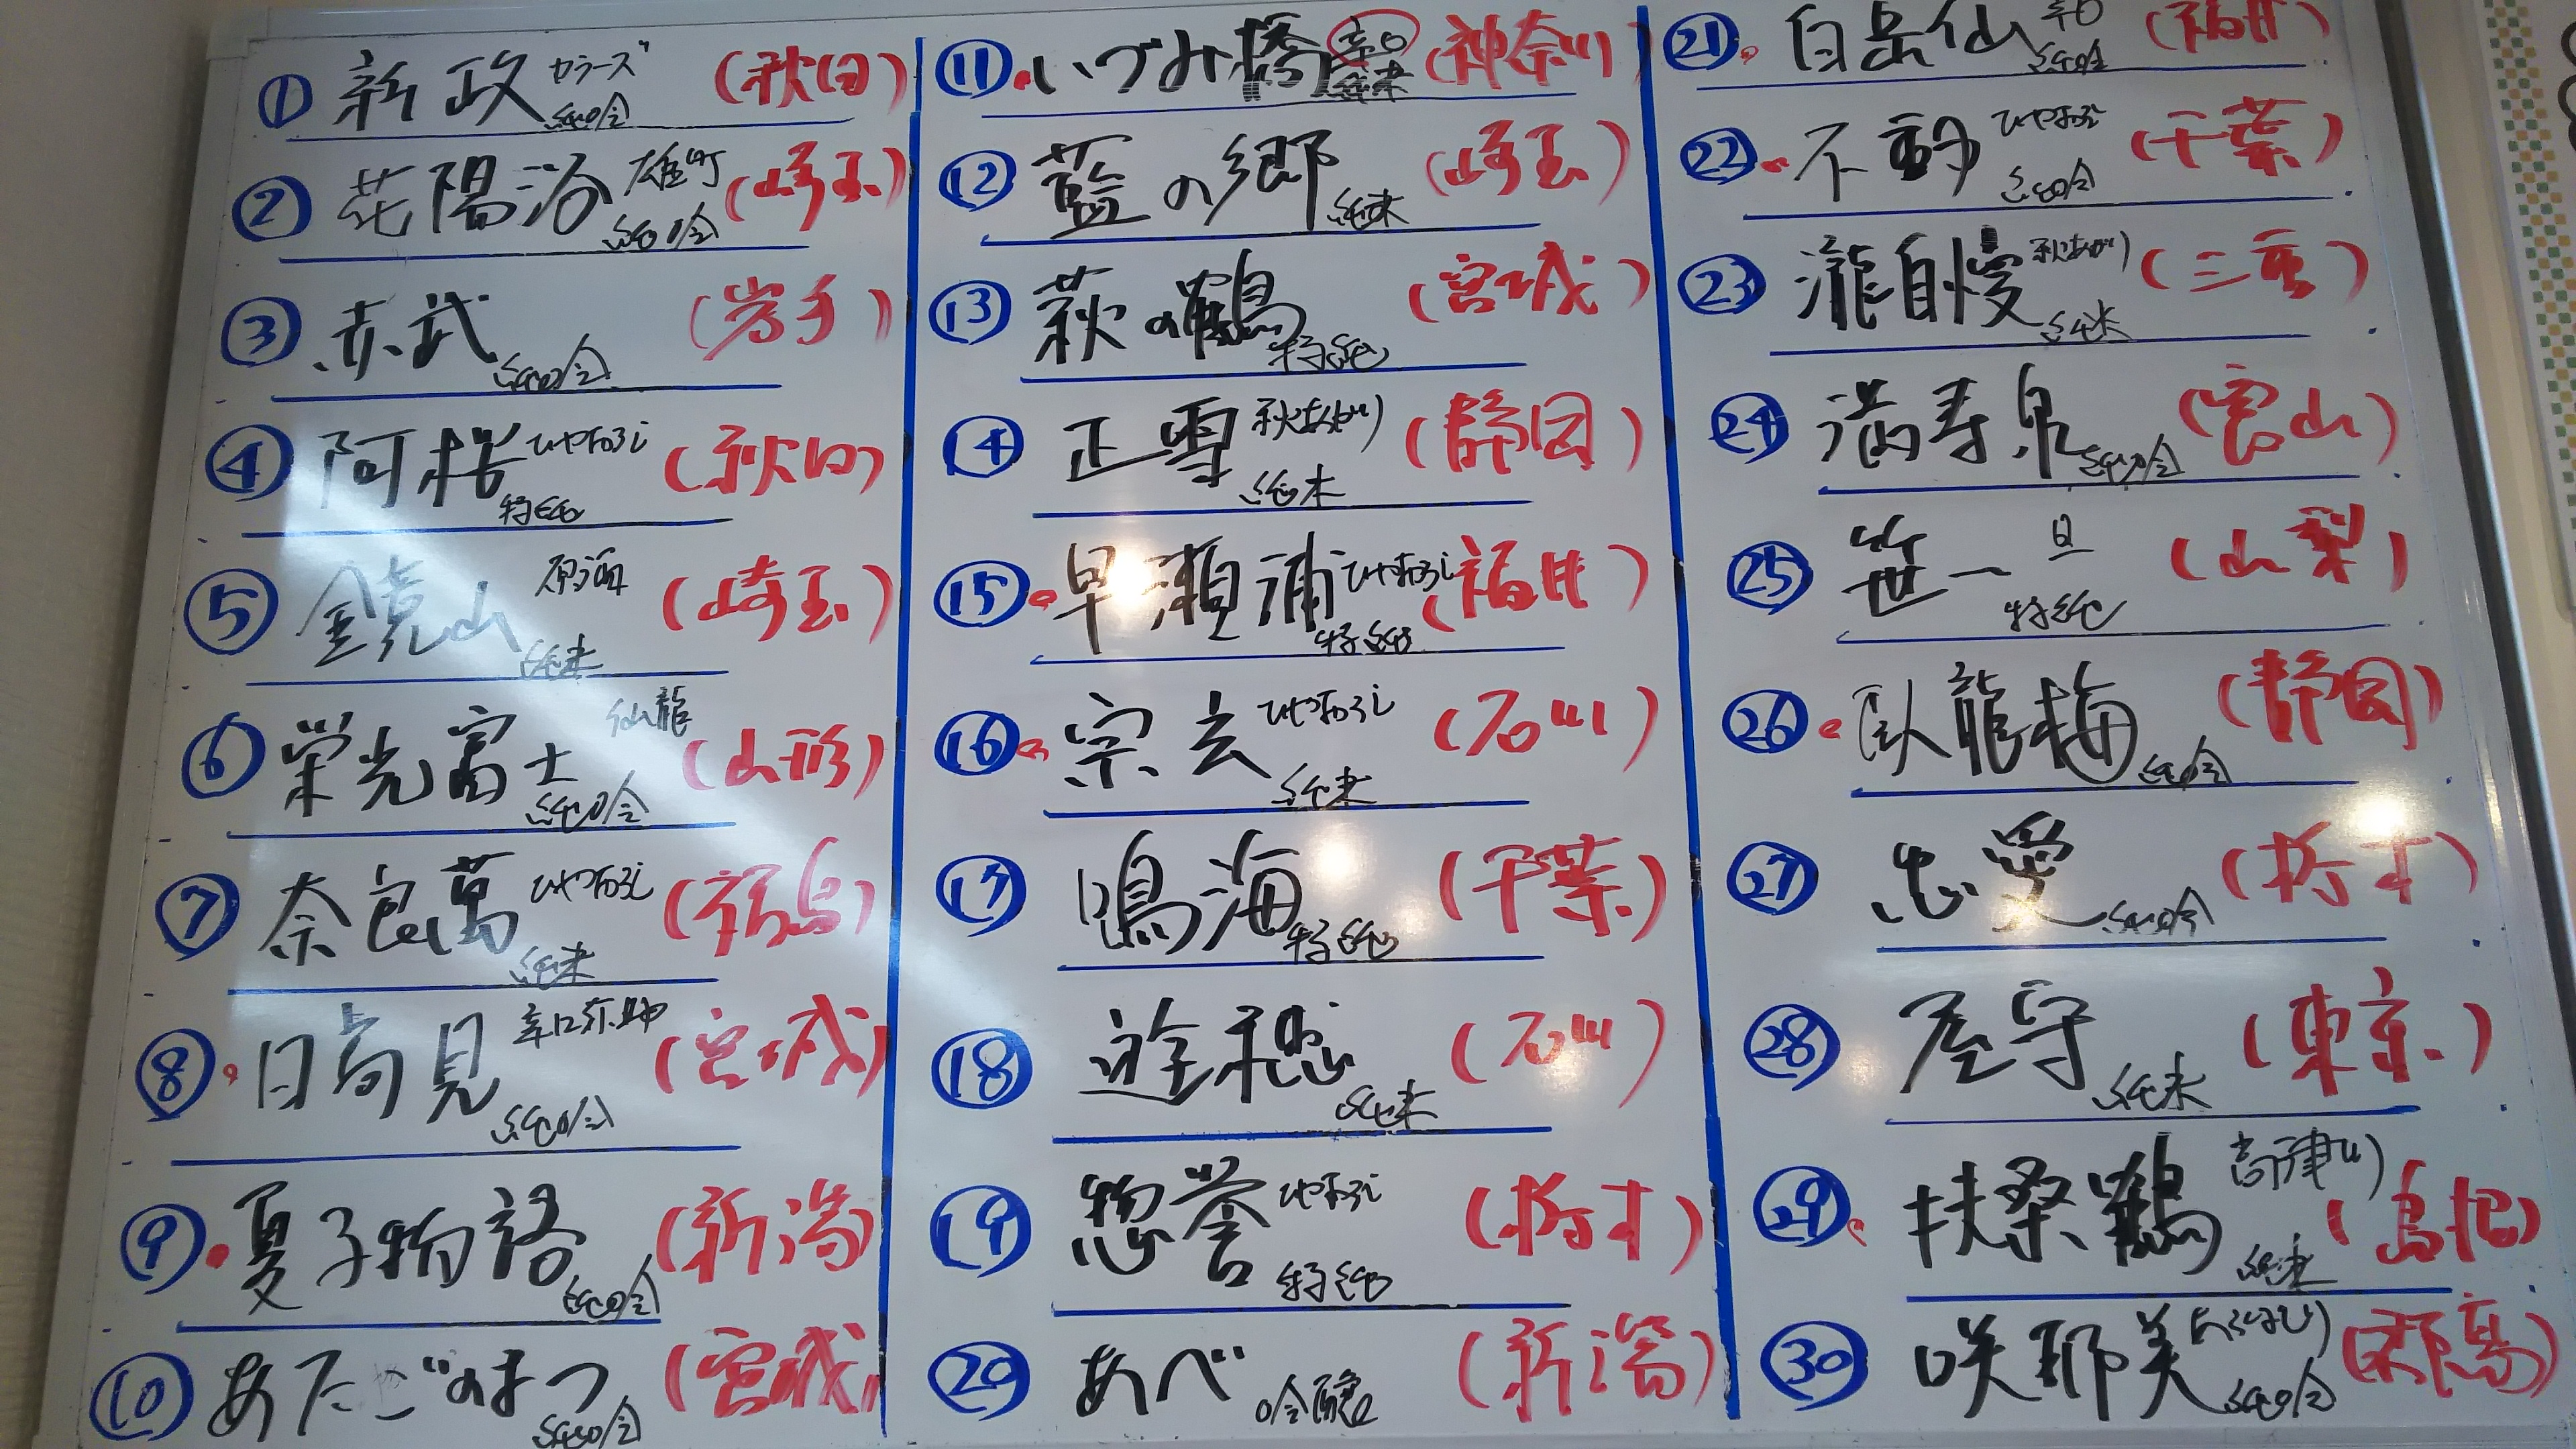 ① 新政 カラーズ 純吟 (秋田)
② 花陽浴 雄町 純吟 (埼玉)
③ 赤武 純吟 (岩手)
④ 阿櫻 ひやおろし 特純 (秋田)
⑤ 鏡山 原酒 純米 (埼玉)
⑥ 栄光冨士 仙龍 純吟 (山形)
⑦ 奈良萬 ひやおろし 純米 (福島)
⑧ 日高見 辛口 弥助 純吟 (宮城)
⑨ 夏子物語 純吟 (新潟)
⑩ あたごのまつ 純吟 (宮城)
⑪ いづみ橋 辛口 純米 (神奈川)
⑫ 藍の郷 純米 (埼玉)
⑬ 萩の鶴 特純 (宮城)
⑭ 正雪 秋あがり 純米 (静岡)
⑮ 早瀬浦 ひやおろし 特純 (福井)
⑯ 宗玄 ひやおろし 純米 (石川)
⑰ 鳴海 特純 (千葉)
⑱ 遊穂 純米 (石川)
⑲ 惣誉 ひやおろし 特純 (栃木)
⑳ あべ 吟醸 (新潟)
㉑ 白岳仙 辛口 純吟 (福井)
㉒ 不動 ひやおろし 純吟 (千葉)
㉓ 瀧自慢 秋あがり 純米 (三重)
㉔ 満寿泉 純吟 (富山)
㉕ 笹一 旦 特純 (山梨)
㉖ 臥龍梅 純吟 (静岡)
㉗ 忠愛 純吟 (栃木)
㉘ 屋守 純米 (東京)
㉙ 扶桑鶴 高津川 純米 (島根)
㉚ 咲耶美 純吟 (群馬)